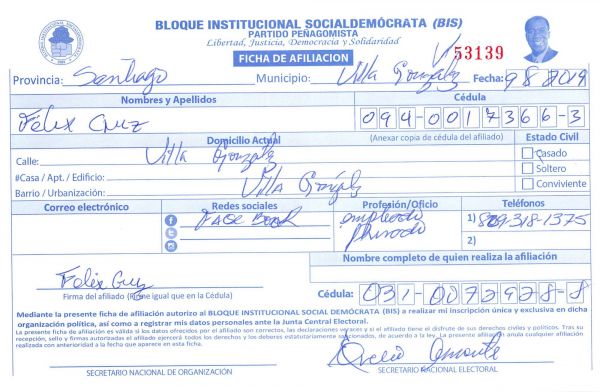 BLOQUE INSTITUCIONAL SOCIALDEMÓCRATA (BIS)
PARTIDO PEÑAGOMISTA
Libertad, Justicia, Democracia y Solidaridad
FICHA DE AFILIACION
53139
Provincia: Santiago Municipio: Villa González Fecha: 9 8 2019
Nombres y Apellidos Cédula
Félix Cruz 094-0017366-3
Domicilio Actual (Anexar copia de cédula del afiliado) Estado Civil
Calle: Villa González Casado
#Casa / Apt. / Edificio: Soltero
Barrio / Urbanización: Villa González Conviviente
Correo electrónico Redes sociales Profesión/Oficio Teléfonos
Face Book empleado 1) 809-318-1375
2)
Nombre completo de quien realiza la afiliación
Felix Cruz
Firma del afiliado (Firme igual que en la Cédula) Cédula: 031-0072928-8
Mediante la presente ficha de afiliación autorizo al BLOQUE INSTITUCIONAL SOCIAL DEMÓCRATA (BIS) a realizar mi inscripción única y exclusiva en dicha
organización política, así como a registrar mis datos personales ante la Junta Central Electoral.
La presente ficha de afiliación es válida si los datos ofrecidos por el afiliado son correctos, las declaraciones veraces y si el afiliado tiene el disfrute de sus derechos civiles y políticos. Tras su
recepción, sello y firmas autorizadas el afiliado ejercerá todos los derechos y los deberes estatutariamente establecidos, de acuerdo a la ley. La presente afiliación anula cualquier afiliación
realizada con anterioridad a la fecha que aparece en esta ficha.
SECRETARIO NACIONAL DE ORGANIZACIÓN SECRETARIO NACIONAL ELECTORAL